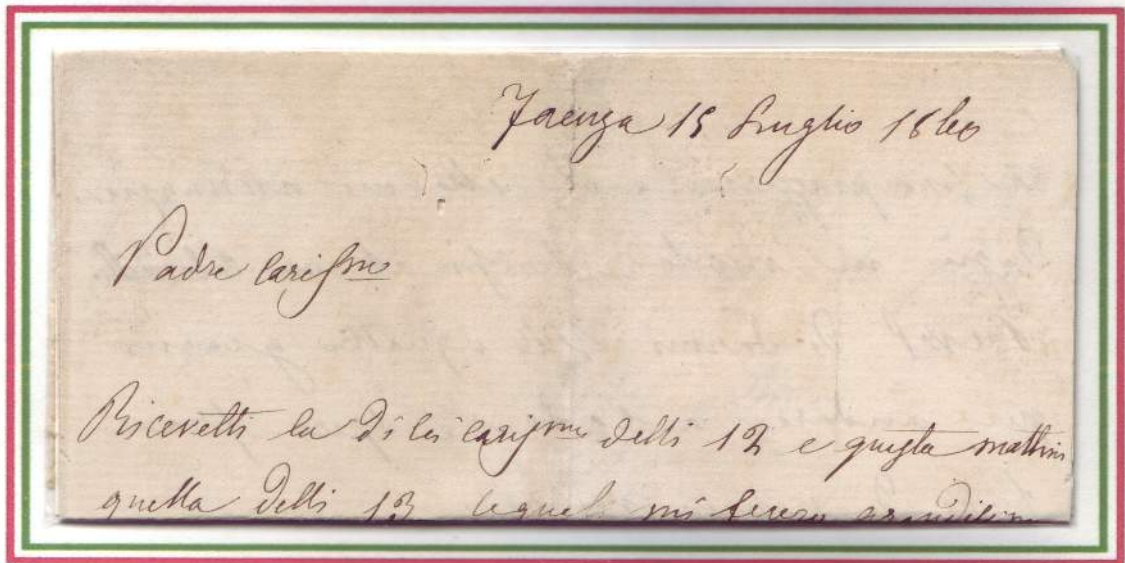 Faenza 15 Luglio 1860
Padre cariſmo
Ricevetti la di lei cariſma delli 12 e queſta mattina
quella delli 13 le quali mi fecero